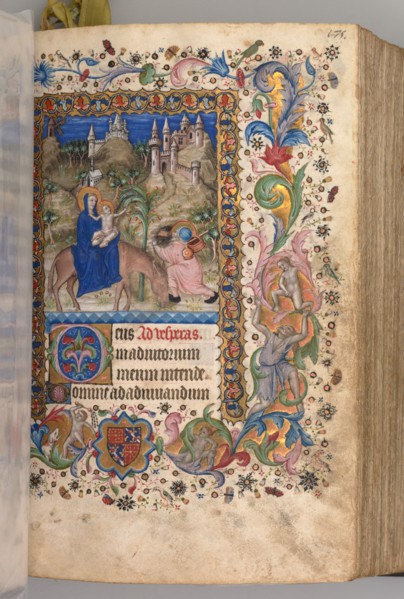 Deus Ad vesperas.
in adiutorium
meum intende.
Domine ad adiuuandum